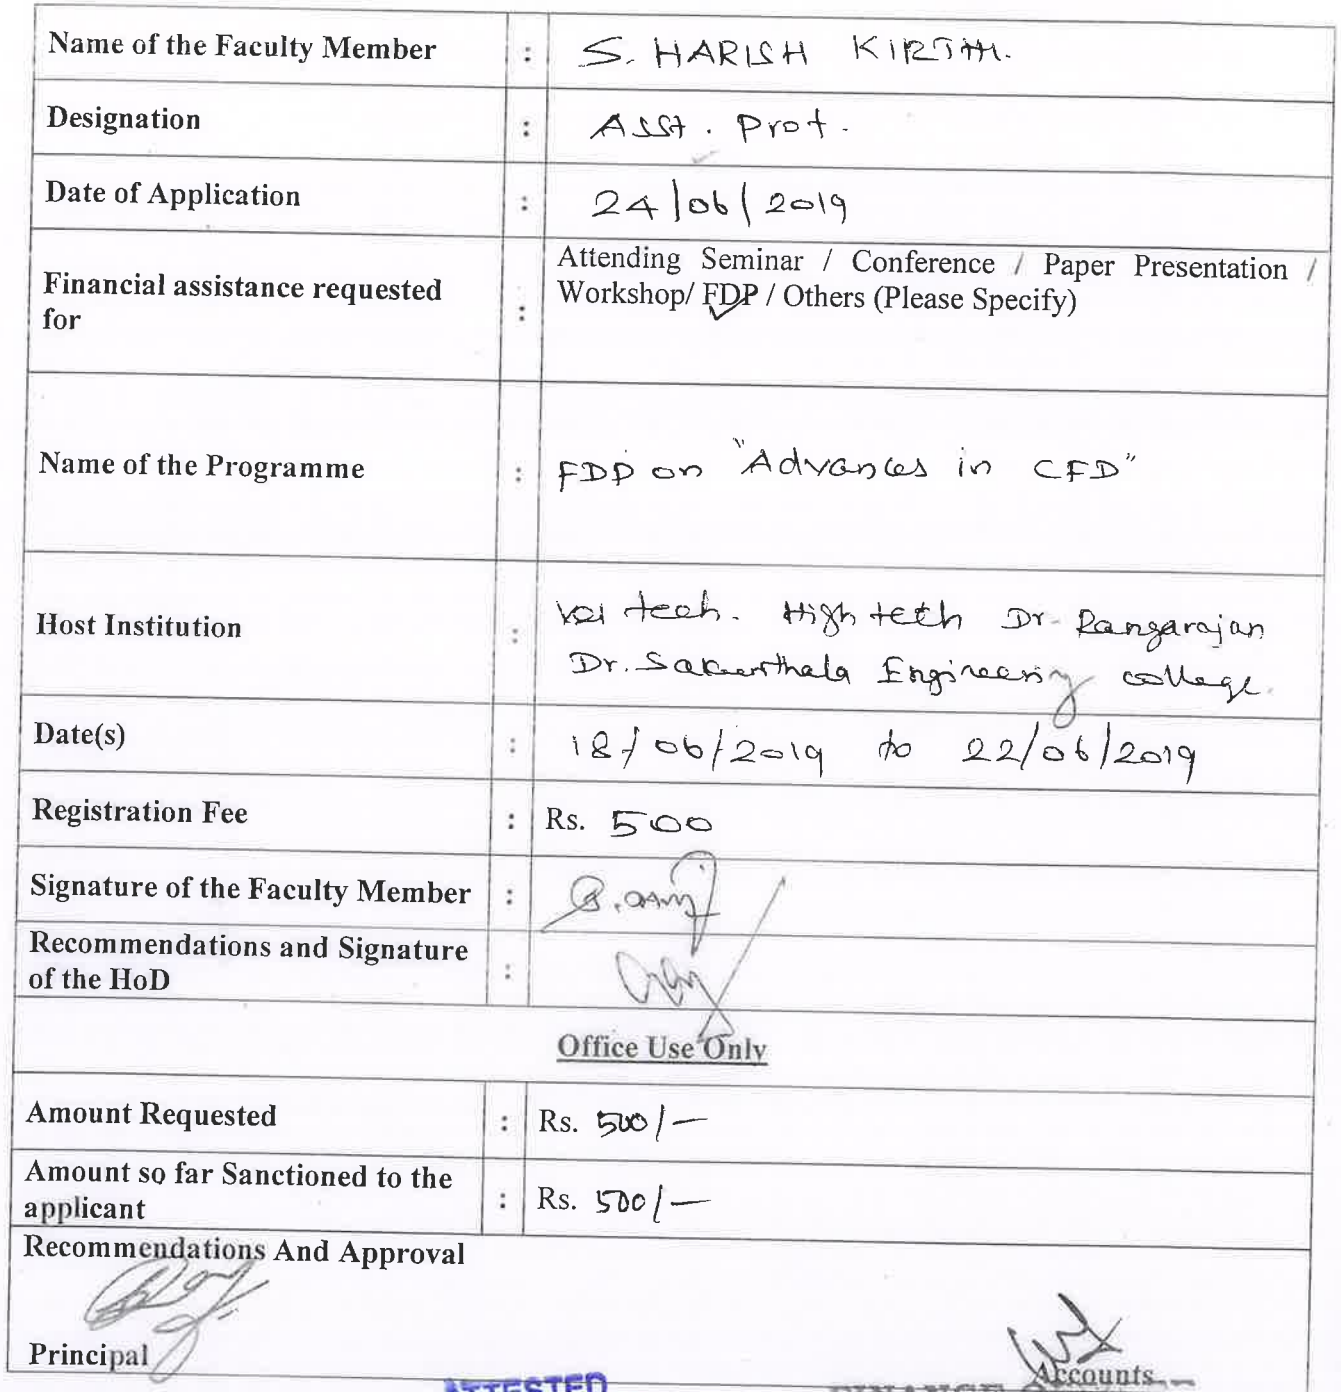 Name of the Faculty Member : S. HARISH KIRTHI.
Designation : Asst. Prof.
Date of Application : 24/06/2019
Financial assistance requested for : Attending Seminar / Conference / Paper Presentation /
Workshop/ FDP / Others (Please Specify)
Name of the Programme : FDP on "Advances in CFD"
Host Institution : Vel tech. High tech Dr. Rangarajan
Dr. Sakunthala Engineering college.
Date(s) : 18/06/2019 to 22/06/2019
Registration Fee : Rs. 500
Signature of the Faculty Member :
Recommendations and Signature
of the HoD :
Office Use Only
Amount Requested : Rs. 500/-
Amount so far Sanctioned to the
applicant : Rs. 500/-
Recommendations And Approval
Principal
Accounts
ATTESTED
FINANCE